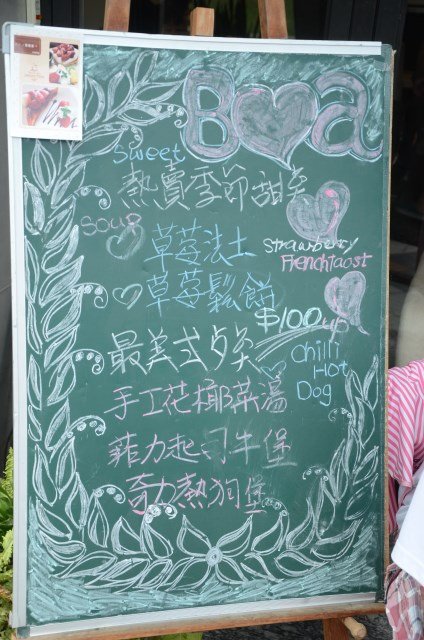 Boa
Sweet
熱賣季節甜美
soup
草莓法士
Strawberry
Frenchtaost
草莓鬆餅
$100up
最美式美
Chilli
Hot
Dog
手工花椰菜湯
菲力起司牛堡
奇力熱狗堡